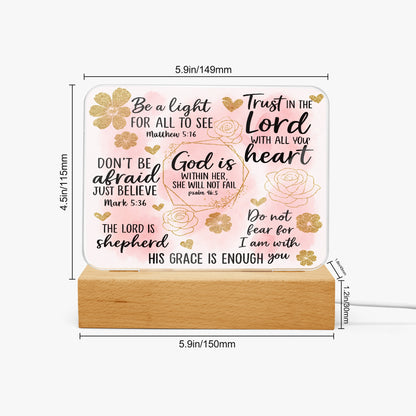 5.9in/149mm
4.5in/115mm
Be a light
FOR ALL TO SEE
Matthew 5:16
Trust IN THE
Lord
WITH ALL YOUR
heart
DON'T BE
afraid
JUST BELIEVE
Mark 5:36
God is
WITHIN HER,
SHE WILL NOT FAIL
psalm 46:5
THE LORD IS
shepherd
Do not
fear for
I am with
you
HIS GRACE IS ENOUGH
1.2in/30mm
5.9in/150mm